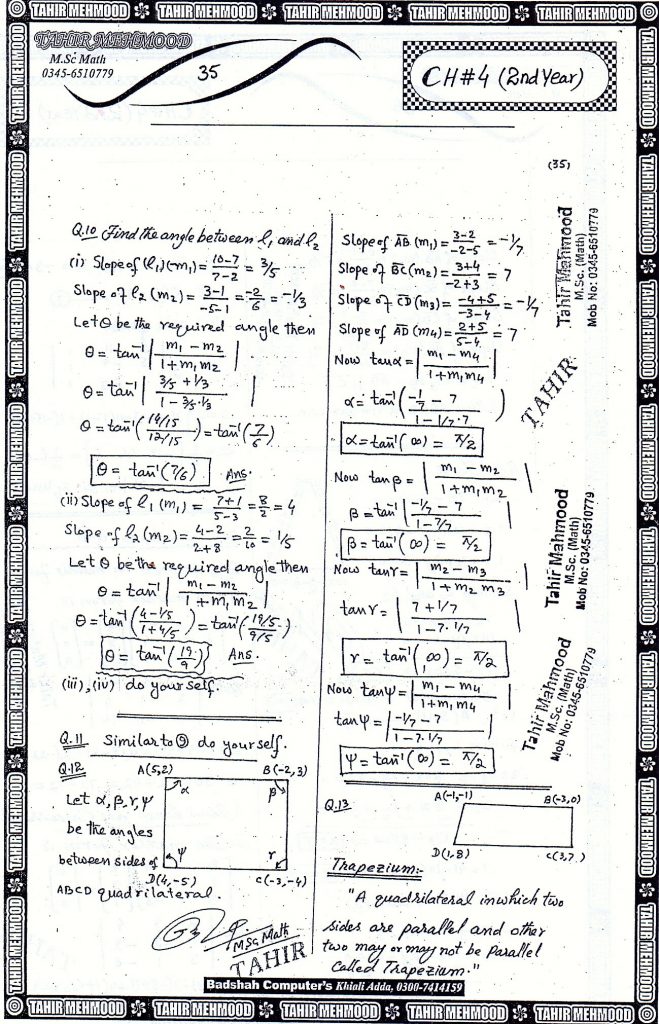 TAHIR MEHMOOD TAHIR MEHMOOD TAHIR MEHMOOD TAHIR MEHMOOD TAHIR MEHMOOD
TAHIR MEHMOOD
M.Sc Math
0345-6510779
35
CH#4 (2nd Year)
(35)
Q.10 Find the angle between l₁ and l₂
(i) Slope of (l₁)(m₁) = 10-7/7-2 = 3/5
Slope of l₂ (m₂) = 3-1/-5-1 = 2/-6 = -1/3
Let θ be the required angle then
θ = tan⁻¹ | m₁ - m₂ / 1 + m₁m₂ |
θ = tan⁻¹ | 3/5 + 1/3 / 1 - 3/5·1/3 |
θ = tan⁻¹ (14/15 / 12/15) = tan⁻¹ (7/6)
θ = tan⁻¹ (7/6) Ans.
(ii) Slope of l₁ (m₁) = 7+1/5-3 = 8/2 = 4
Slope of l₂ (m₂) = 4-2/2+8 = 2/10 = 1/5
Let θ be the required angle then
θ = tan⁻¹ | m₁ - m₂ / 1 + m₁m₂ |
θ = tan⁻¹ (4-1/5 / 1+4/5) = tan⁻¹ (19/5 / 9/5)
θ = tan⁻¹ (19/9) Ans.
(iii), (iv) do yourself.
Q.11 Similar to ⑨ do yourself.
Q.12 A(5,2) B(-2,3)
α β
Let α, β, γ, ψ
be the angles
between sides of
ψ γ
D(4,-5) C(-3,-4)
ABCD quadrilateral.
M.Sc Math
TAHIR
Slope of AB (m₁) = 3-2/-2-5 = -1/7
Slope of BC (m₂) = 3+4/-2+3 = 7
Slope of CD (m₃) = -4+5/-3-4 = -1/7
Slope of AD (m₄) = 2+5/5-4 = 7
Now tanα = | m₁ - m₄ / 1 + m₁m₄ |
α = tan⁻¹ (-1/7 - 7 / 1 - 1/7·7)
α = tan⁻¹ (∞) = π/2
Now tanβ = | m₁ - m₂ / 1 + m₁m₂ |
β = tan⁻¹ | -1/7 - 7 / 1 - 7/7 |
β = tan⁻¹ (∞) = π/2
Now tanγ = | m₂ - m₃ / 1 + m₂m₃ |
tanγ = | 7 + 1/7 / 1 - 7·1/7 |
γ = tan⁻¹ (∞) = π/2
Now tanψ = | m₁ - m₄ / 1 + m₁m₄ |
tanψ = | -1/7 - 7 / 1 - 7·1/7 |
ψ = tan⁻¹ (∞) = π/2
Q.13 A(-1,-1) B(-3,0)
D(1,8) C(3,7)
Trapezium:-
"A quadrilateral in which two
sides are parallel and other
two may or may not be parallel
called Trapezium."
Tahir Mahmood
M.Sc. (Math)
Mob No: 0345-6510779
TAHIR
Tahir Mahmood
M.Sc. (Math)
Mob No: 0345-6510779
Tahir Mahmood
M.Sc. (Math)
Mob No: 0345-6510779
Badshah Computer's Khiali Adda, 0300-7414159
TAHIR MEHMOOD TAHIR MEHMOOD TAHIR MEHMOOD TAHIR MEHMOOD TAHIR MEHMOOD